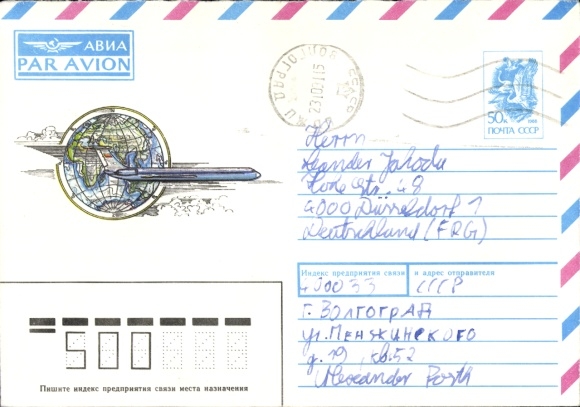 АВИА
PAR AVION
ВОЛГОГРАД
50к
1988
ПОЧТА СССР
Herrn
Leander
Str. 48
4000 Düsseldorf 1
Deutschland (FRG)
Индекс предприятия связи и адрес отправителя
400033 СССР
г. ВОЛГОГРАД
ул. МЕНЖИНСКОГО
д. 19, кв. 52
Alexander
500
Пишите индекс предприятия связи места назначения